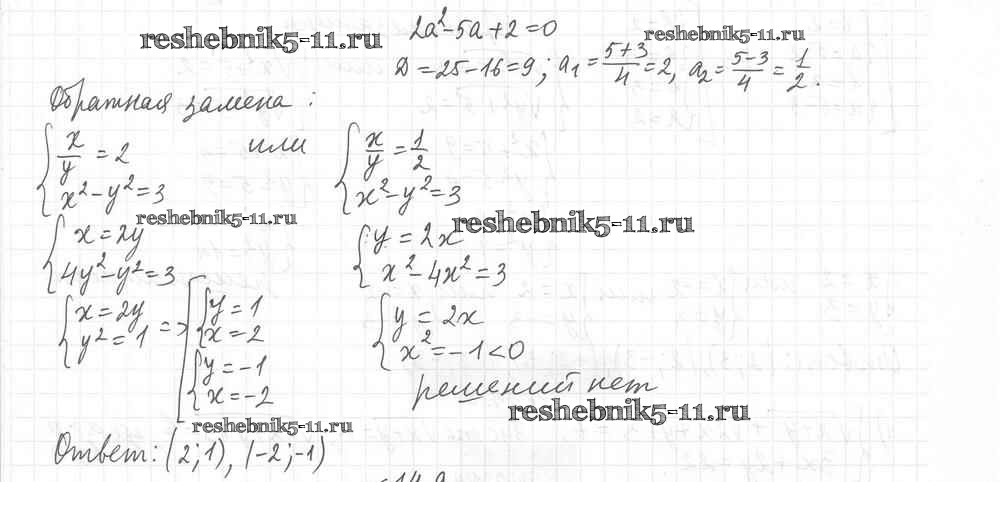 2a²-5a+2=0
reshebnik5-11.ru reshebnik5-11.ru
D=25-16=9; a₁=(5+3)/4=2, a₂=(5-3)/4=1/2.
Обратная замена:
{ x/y=2 или { x/y=1/2
x²-y²=3 x²-y²=3
reshebnik5-11.ru reshebnik5-11.ru
{ x=2y { y=2x
4y²-y²=3 x²-4x²=3
{ x=2y => [ { y=1 { y=2x
y²=1 x=2 x²=-1<0
{ y=-1
x=-2 решений нет
reshebnik5-11.ru reshebnik5-11.ru
Ответ: (2;1), (-2;-1)